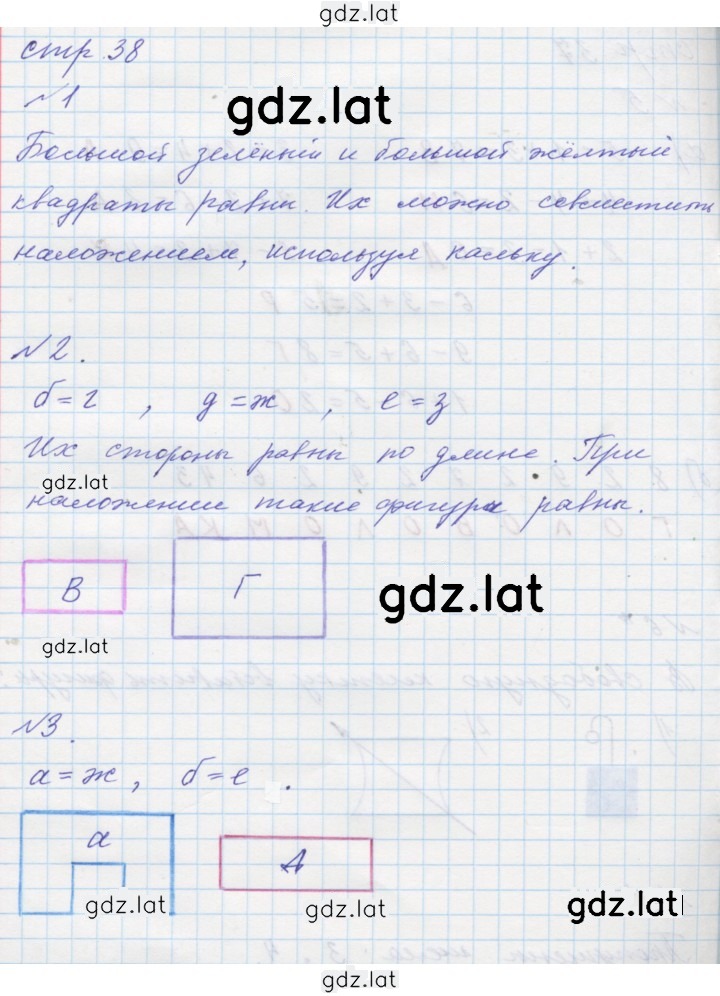 gdz.lat
стр 38
№1
gdz.lat
Большой зелёный и большой жёлтый
квадраты равны. Их можно совместить
наложением, используя кальку.
№2.
б=г , д=ж , е=з
Их стороны равны по длине. При
gdz.lat
наложении такие фигуры равны.
В Г
gdz.lat
gdz.lat
№3.
а=ж, б=е.
а Д
gdz.lat gdz.lat gdz.lat
gdz.lat